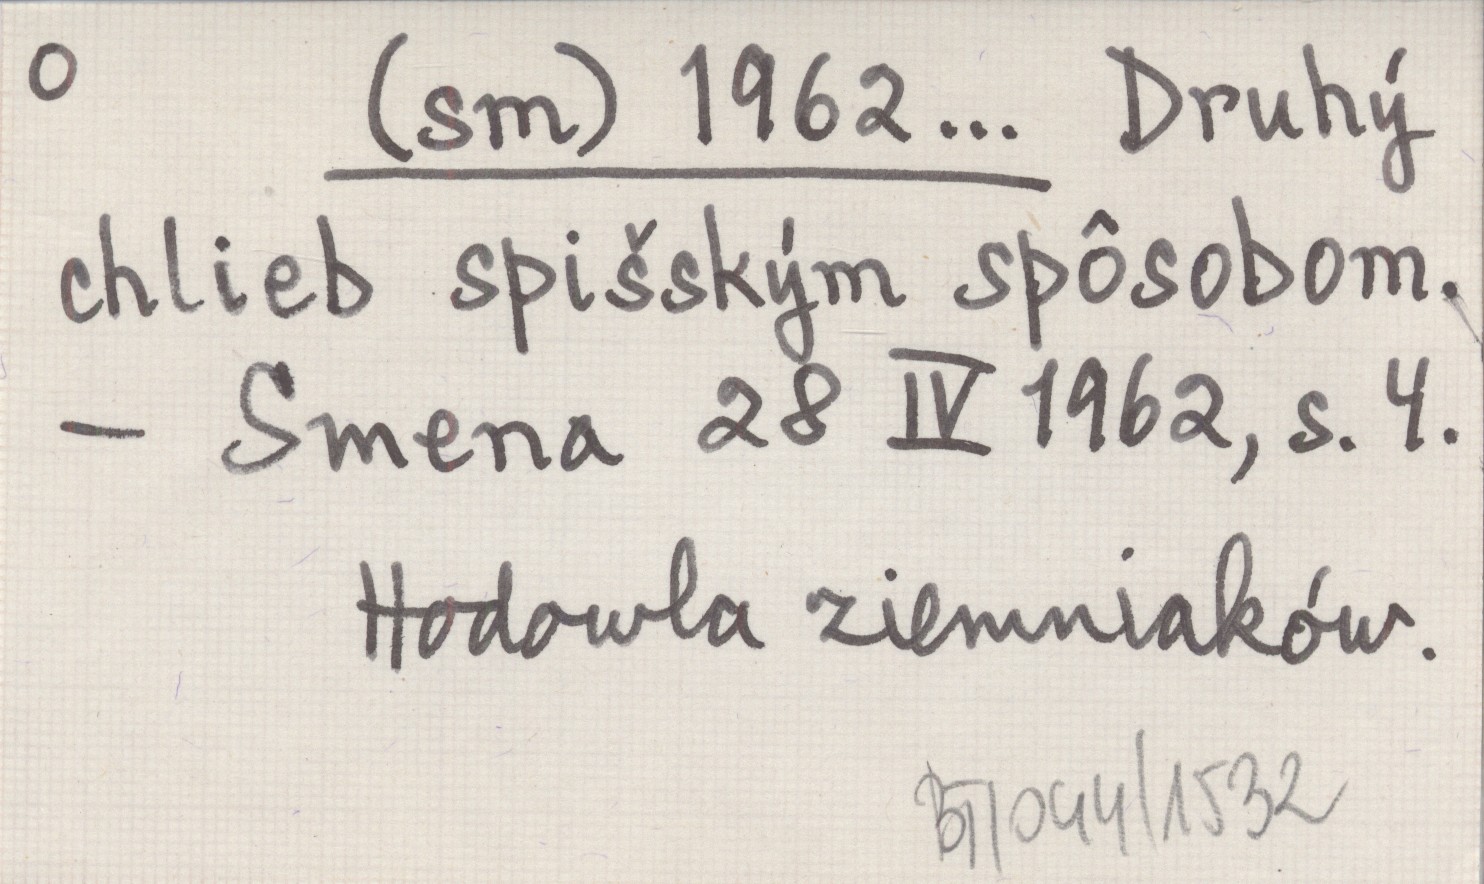 o (sm) 1962... Druhý
chlieb spišským spôsobom.
- Smena 28 IV 1962, s. 4.
Hodowla ziemniaków.
BT/044/1532